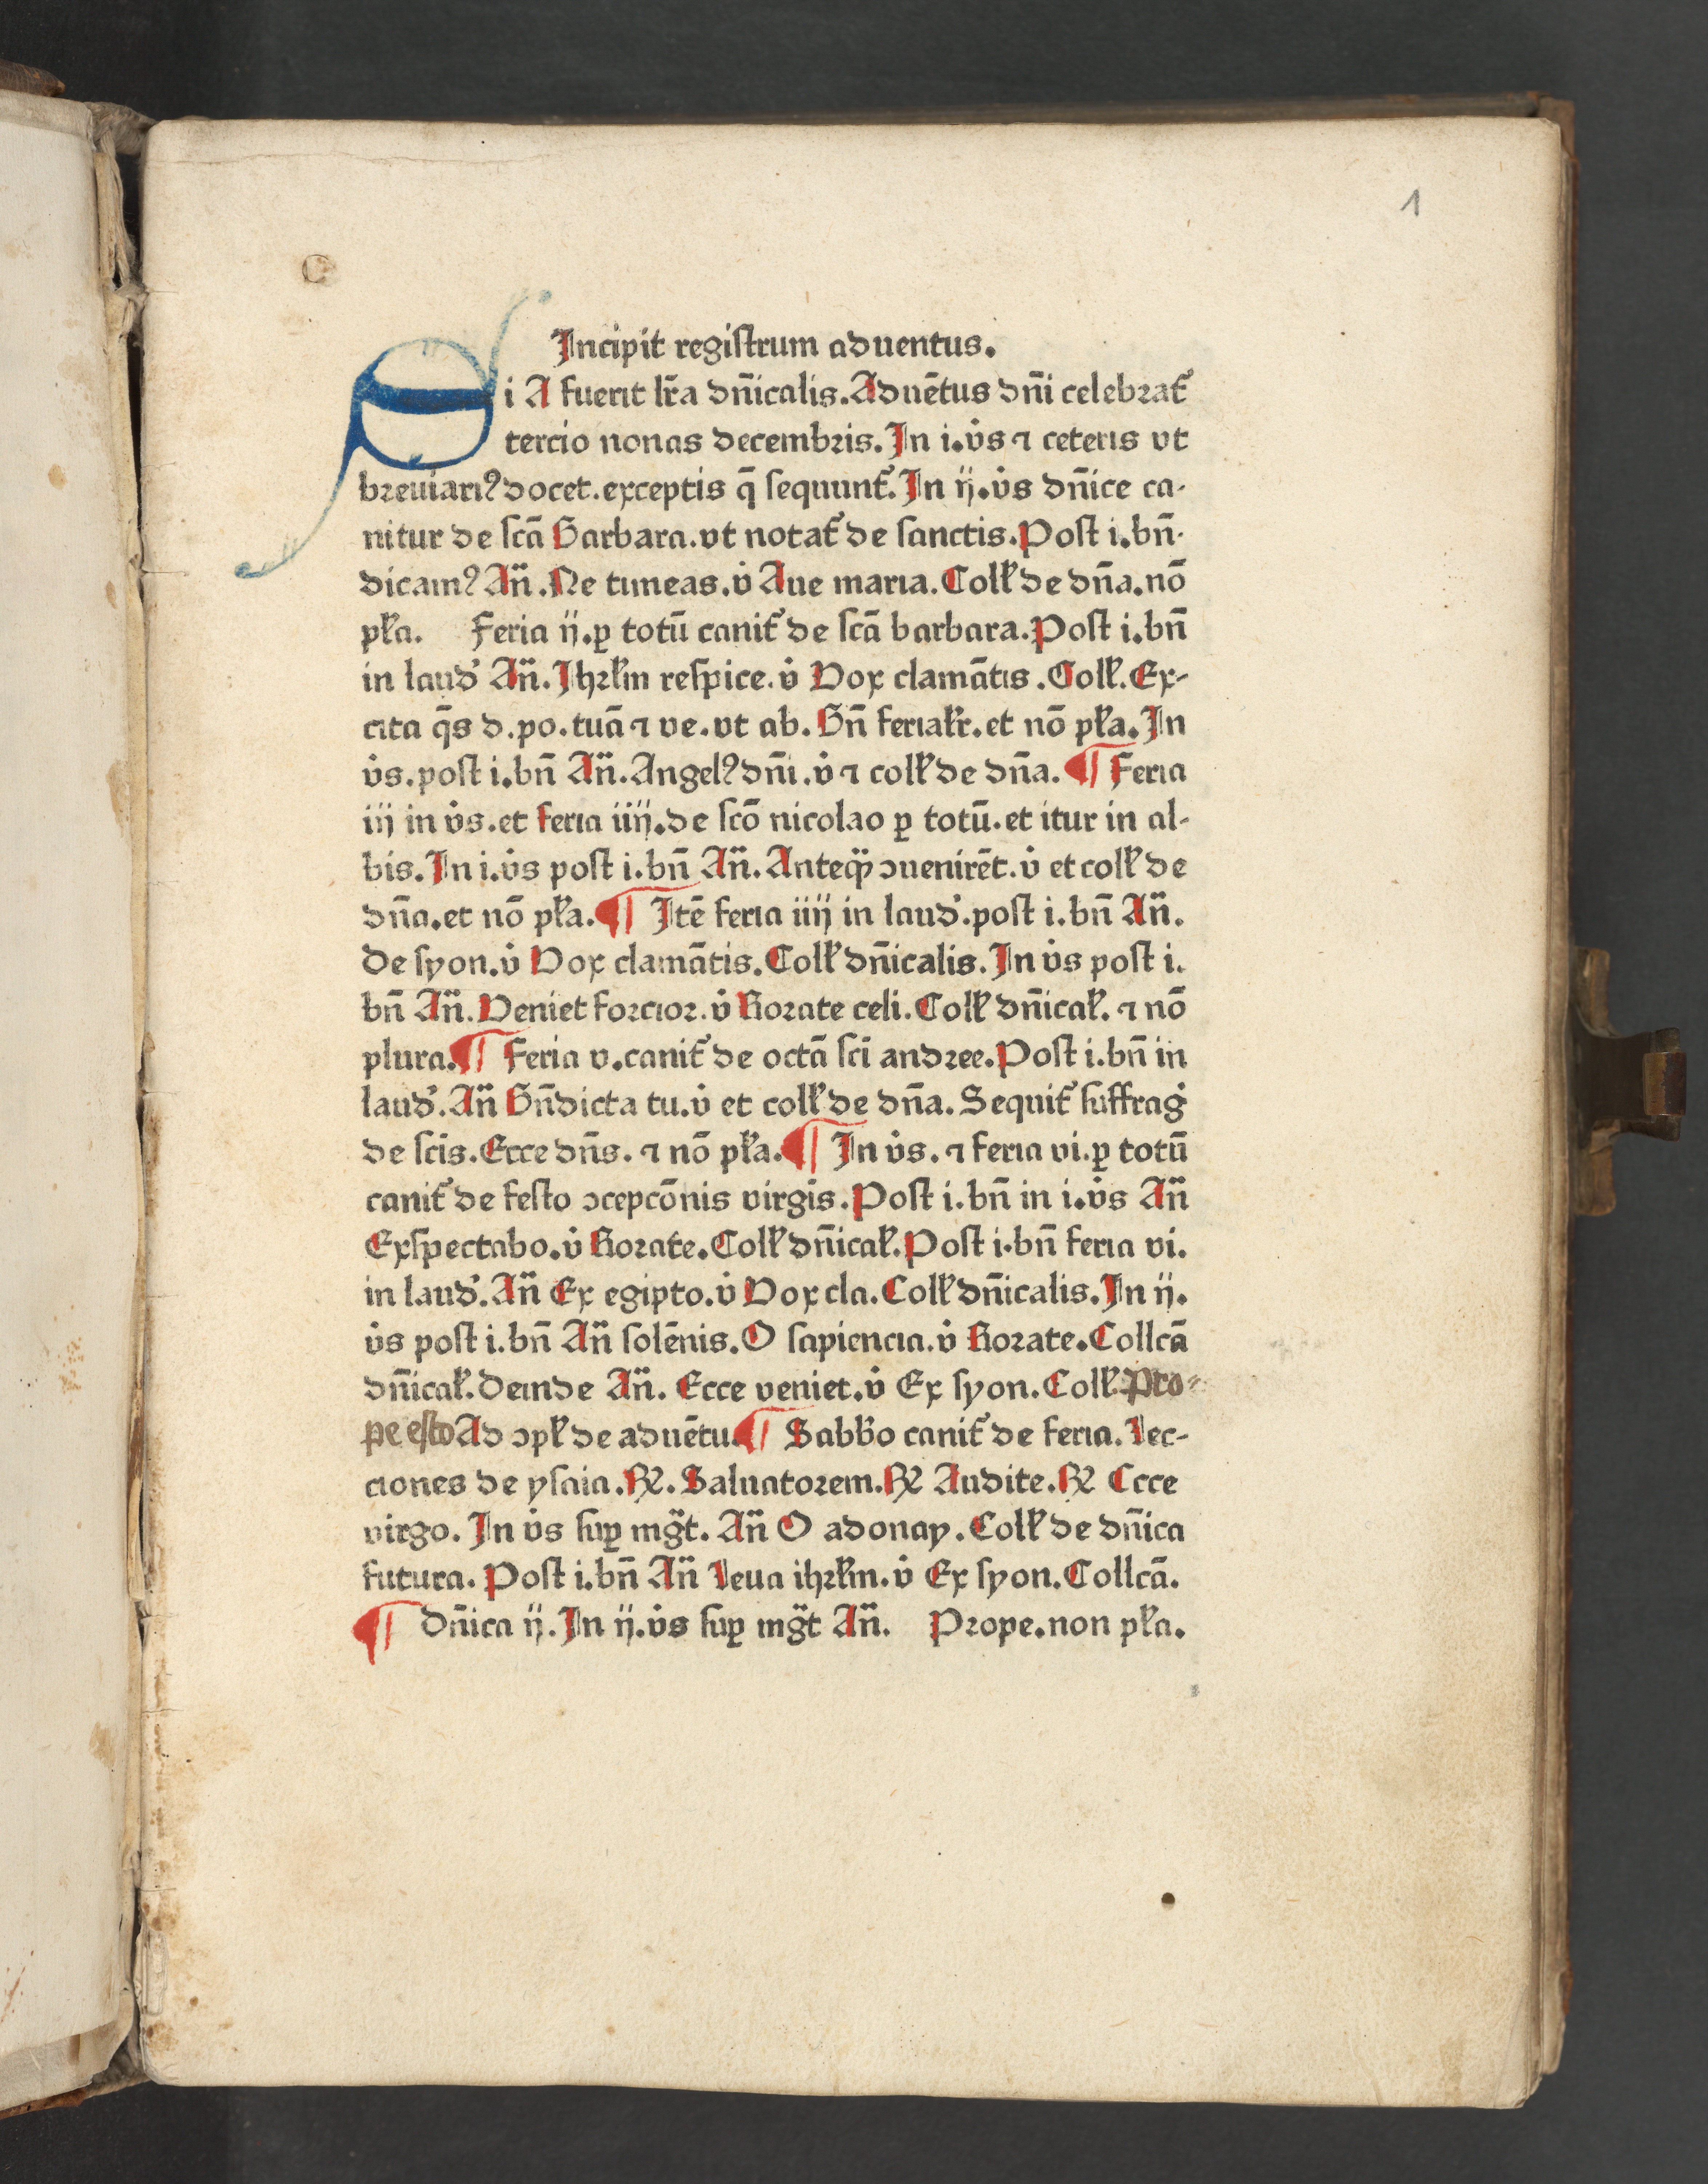 1
Incipit regiſtrum aduentus.
Si A fuerit lr̄a dn̄icalis. Aduētus dn̄i celebꝛat᷑
tercio nonas decembꝛis. In i. v̇s ⁊ ceteris vt
bꝛeuiariꝰ docet. exceptis q̄ ſequunt᷑. In ij. v̇s dn̄ice ca-
nitur de ſcā Barbara. vt notat᷑ de ſanctis. Poſt i. bn̄-
dicamꝰ An̄. Ne timeas. v̇ Aue maria. Collꝭ de dn̄a. nō
pła. Feria ij. ꝑ totū canit᷑ de ſcā barbara. Poſt i. bn̄
in laud̓ An̄. Ihꝛłm reſpice. v̇ Vox clamātis. Collꝭ. Ex-
cita q̄s d. po. tuā ⁊ ve. vt ab. Bn̄ feriałr. et nō pła. In
v̇s. poſt i. bn̄ An̄. Angelꝰ dn̄i. v̇ ⁊ collꝭ de dn̄a. ¶ Feria
iij in v̇s. et feria iiij. de ſcō nicolao ꝑ totū. et itur in al-
bis. In i. v̇s poſt i. bn̄ An̄. Anteq̈ꝫ ↄuenirēt. v̇ et collꝭ de
dn̄a. et nō pła. ¶ Itē feria iiij in laud̓. poſt i. bn̄ An̄.
De ſyon. v̇ Vox clamātis. Collꝭ dn̄icalis. In v̇s poſt i.
bn̄ An̄. Veniet foꝛcioꝛ. v̇ Roꝛate celi. Collꝭ dn̄icał. ⁊ nō
plura. ¶ Feria v. canit᷑ de octā ſci̅ andꝛee. Poſt i. bn̄ in
laud̓. An̄ Bn̄dicta tu. v̇ et collꝭ de dn̄a. Sequit᷑ ſuffrag̓
de ſci̅s. Ecce dn̄s. ⁊ nō pła. ¶ In v̇s. ⁊ feria vi. ꝑ totū
canit᷑ de feſto ↄcepcōnis virgi̅s. Poſt i. bn̄ in i. v̇s An̄
Exſpectabo. v̇ Roꝛate. Collꝭ dn̄icał. Poſt i. bn̄ feria vi.
in laud̓. An̄ Ex egipto. v̇ Vox cla. Collꝭ dn̄icalis. In ij.
v̇s poſt i. bn̄ An̄ ſolēnis. O ſapiencia. v̇ Roꝛate. Collcā
dn̄icał. Deinde An̄. Ecce veniet. v̇ Ex ſyon. Collꝭ. Pro-
pe eſto Ad ↄpł de aduētu. ¶ Sabb̓o canit᷑ de feria. Lec-
ciones de yſaia. ℞. Saluatoꝛem. ℞ Audite. ℞ Ecce
virgo. In v̇s ſuꝑ mg̅t. An̄ O adonay. Collꝭ de dn̄ica
futura. Poſt i. bn̄ An̄ Leua ihꝛłm. v̇ Ex ſyon. Collcā.
¶ Dn̄ica ij. In ij. v̇s ſuꝑ mg̅t An̄. Pꝛope. non pła.